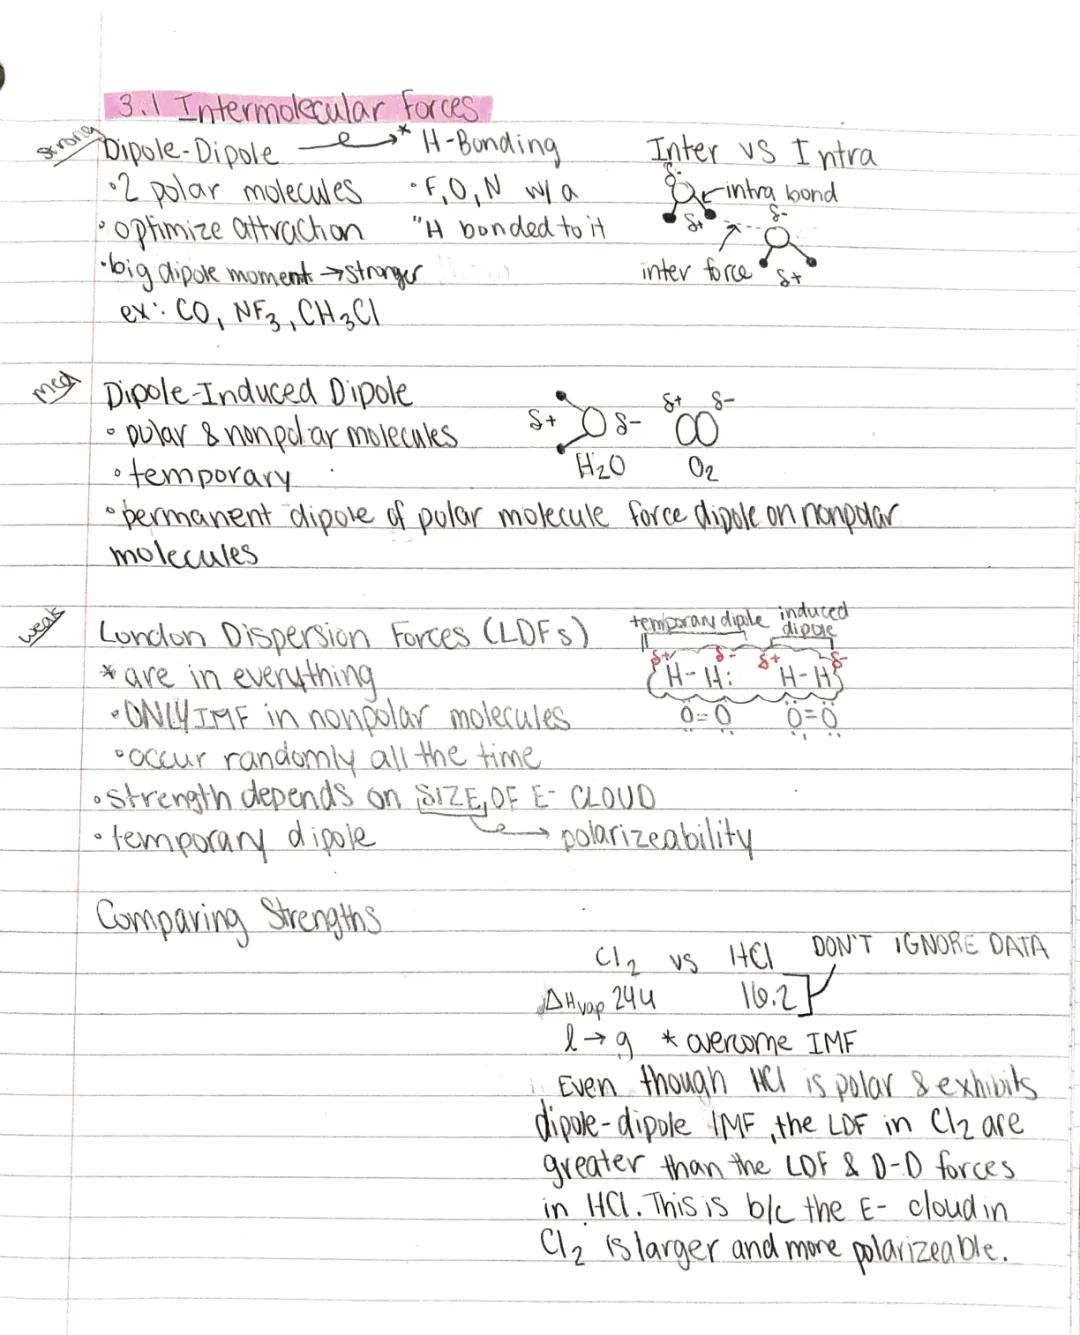 3.1 Intermolecular Forces
strong
Dipole-Dipole → * H-Bonding
• 2 polar molecules • F, O, N w/ a
• optimize attraction "H bonded to it
• big dipole moment → stronger
ex: CO, NF3, CH3Cl
Inter vs Intra
δ- intra bond
δ+ δ-
inter force δ+
med
Dipole-Induced Dipole
• polar & nonpolar molecules
• temporary
δ+ δ- δ+ δ-
H2O O2
• permanent dipole of polar molecule force dipole on nonpolar
molecules
weak
London Dispersion Forces (LDFs)
* are in everything
• ONLY IMF in nonpolar molecules
• occur randomly all the time
• strength depends on SIZE OF E- CLOUD
• temporary dipole → polarizeability
temporary diple induced
dipole
δ+ δ- δ+ δ-
H-H: H-H
O=O O=O
Comparing Strengths
Cl2 vs HCl DON'T IGNORE DATA
ΔHvap 16.2
l → g * overcome IMF
Even though HCl is polar & exhibits
dipole-dipole IMF, the LDF in Cl2 are
greater than the LDF & D-D forces
in HCl. This is b/c the E- cloud in
Cl2 is larger and more polarizeable.